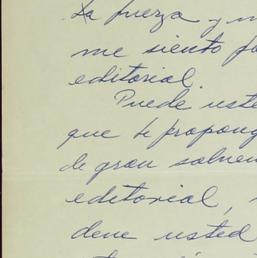 La fuerza y m
me siento fo
editorial.
Puede uste
que te propong
de gran solven
editorial,
dene usted